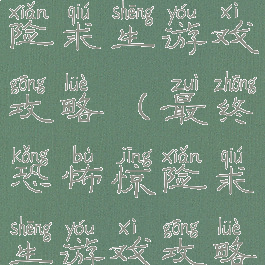 xiǎn qiú shēng yóu xì
险 求 生 游 戏
gōng lüè zuì zhōng
攻 略 （ 最 终
kǒng bù jīng xiǎn qiú
恐 怖 惊 险 求
shēng yóu xì gōng lüè
生 游 戏 攻 略